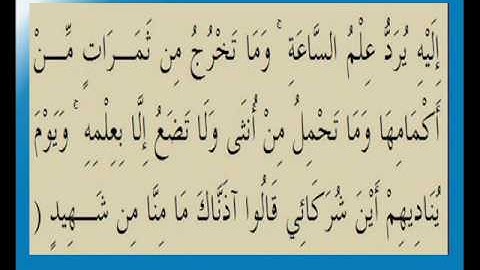 إِلَيْهِ يُرَدُّ عِلْمُ السَّاعَةِ ۚ وَمَا تَخْرُجُ مِن ثَمَرَاتٍ مِّــنْ
أَكْمَامِهَا وَمَا تَحْمِلُ مِنْ أُنثَى وَلَا تَضَعُ إِلَّا بِعِلْمِهِ ۚ وَيَوْمَ
يُنَادِيهِمْ أَيْنَ شُرَكَائِي قَالُوا آذَنَّاكَ مَا مِنَّا مِن شَــهِيدٍ (